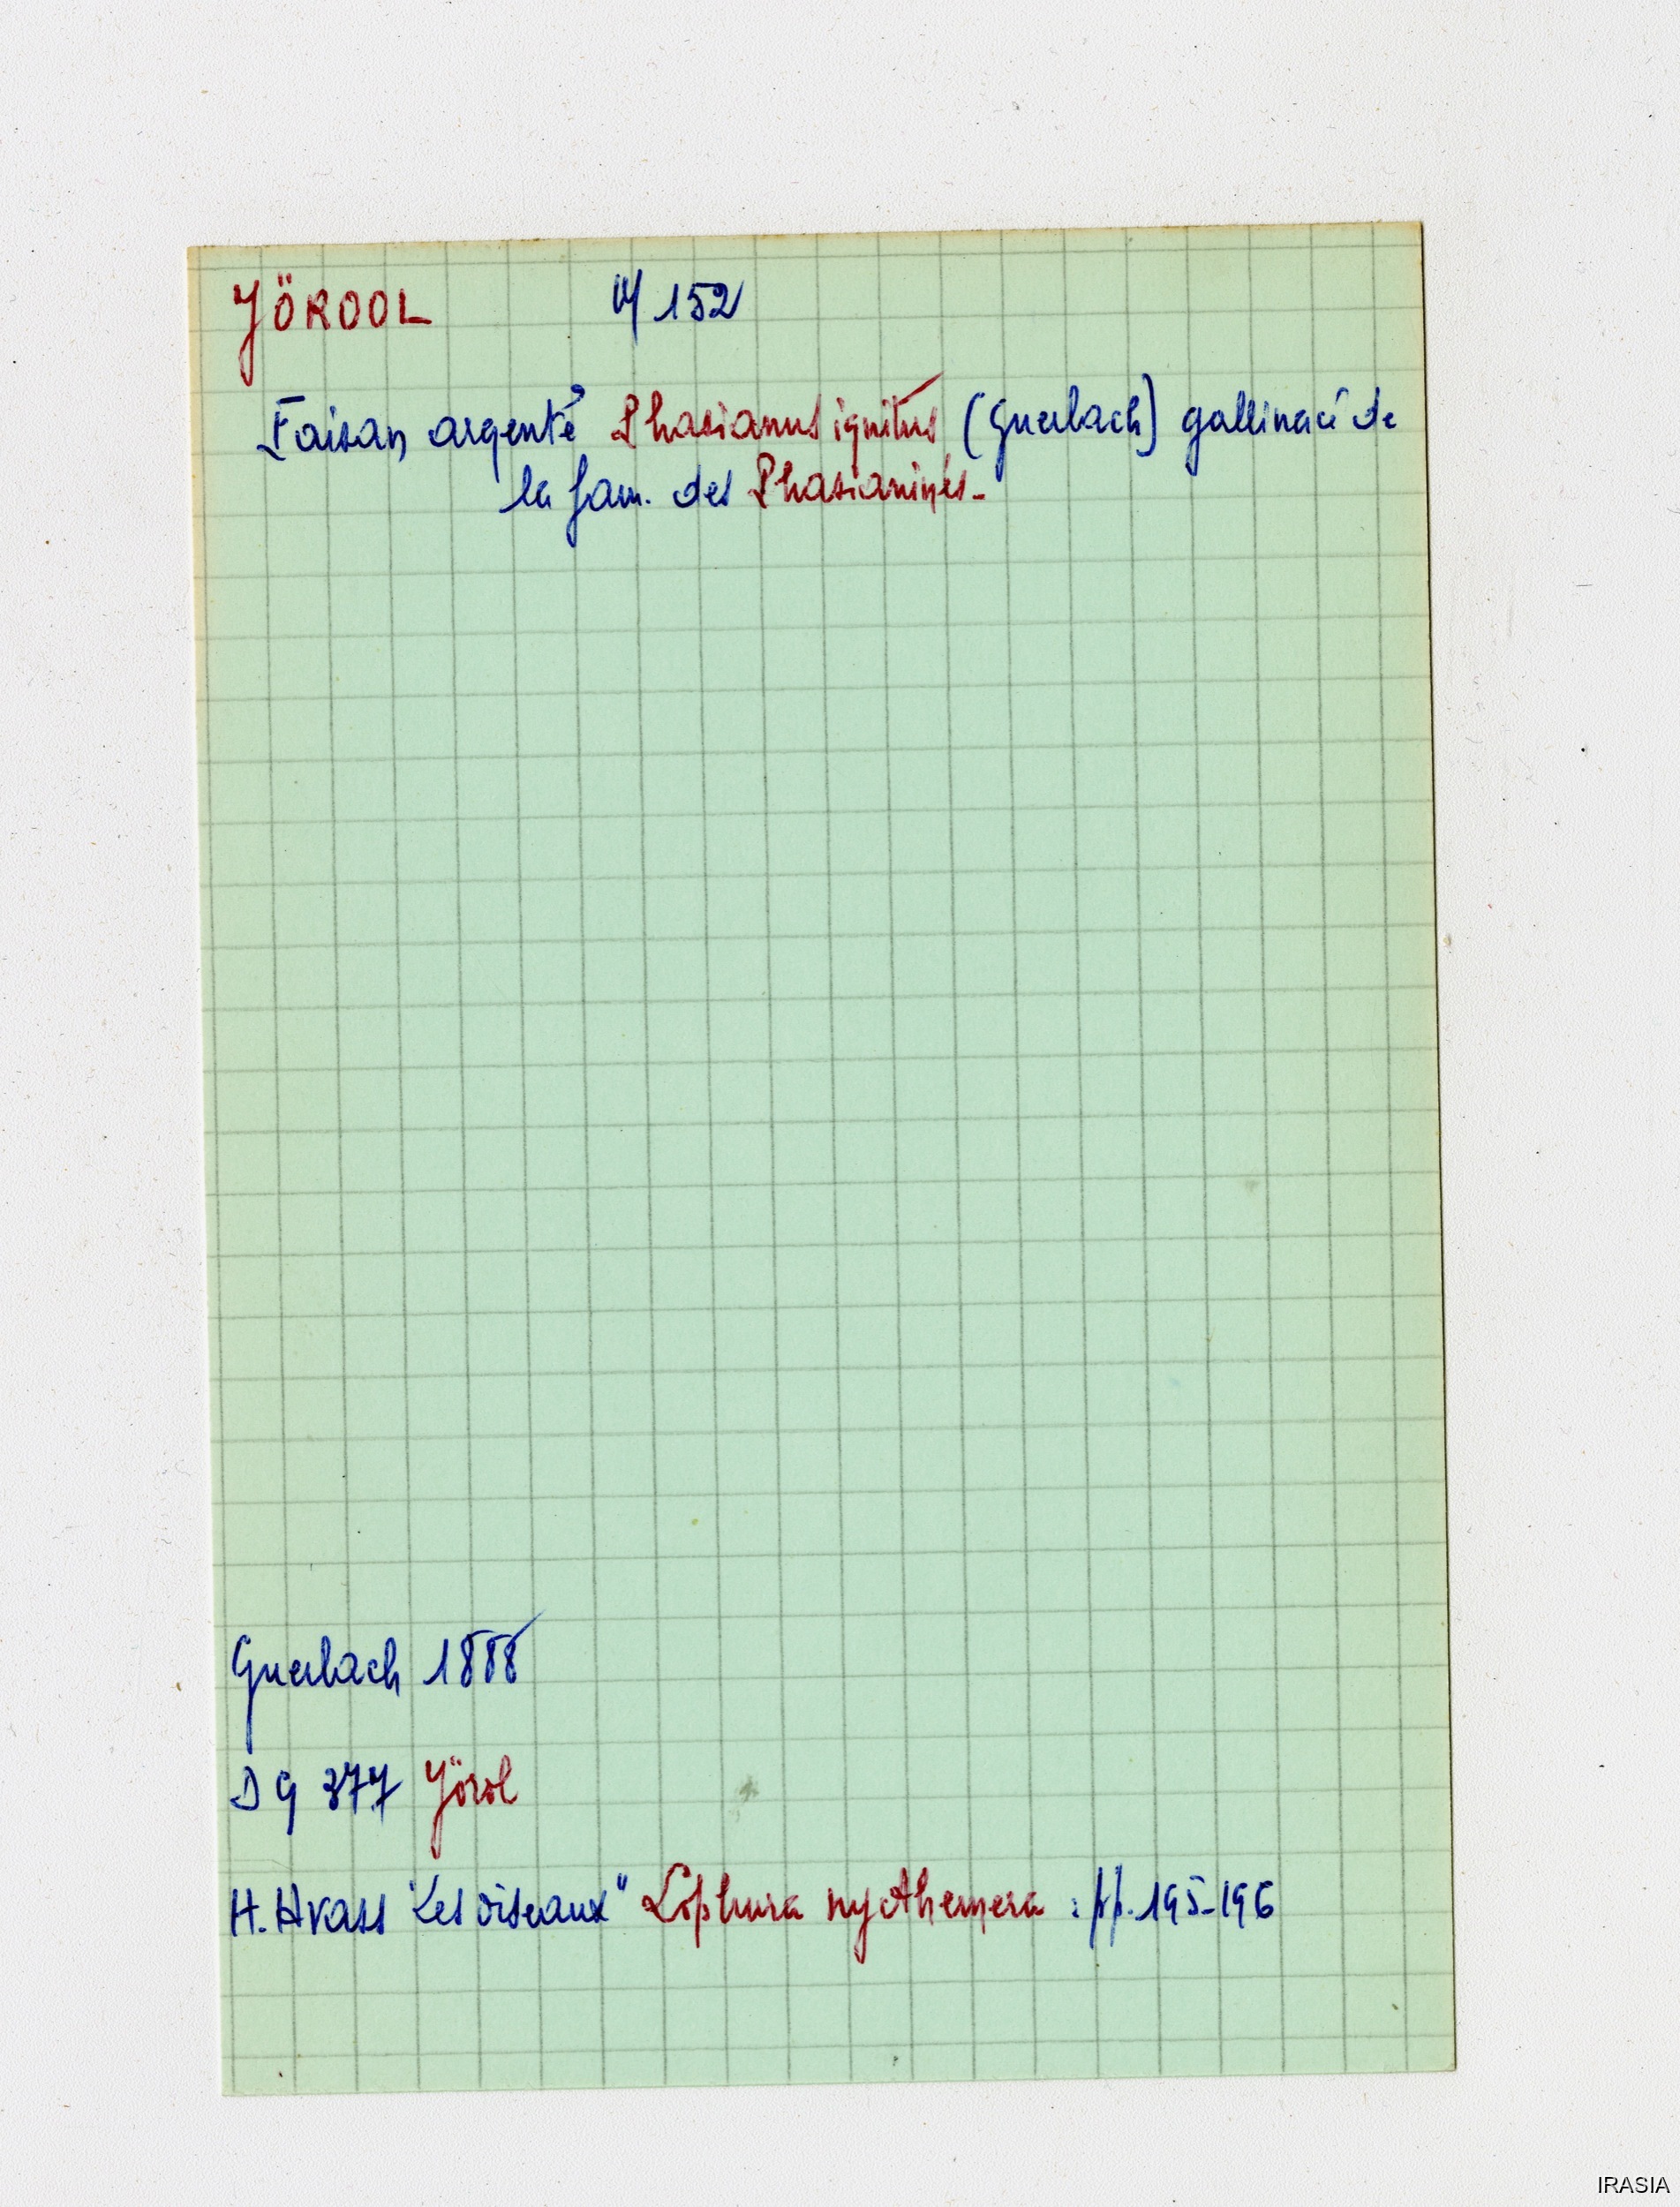 YÖROOL IV 152
Faisan argenté Phasianus ignitus (Guerlach) gallinacé de
la fam. des Phasianinés.
Guerlach 1888
D G 377 Yörol
H. Hvass "Les oiseaux" Lophura nycthemera : pp. 195-196
IRASIA